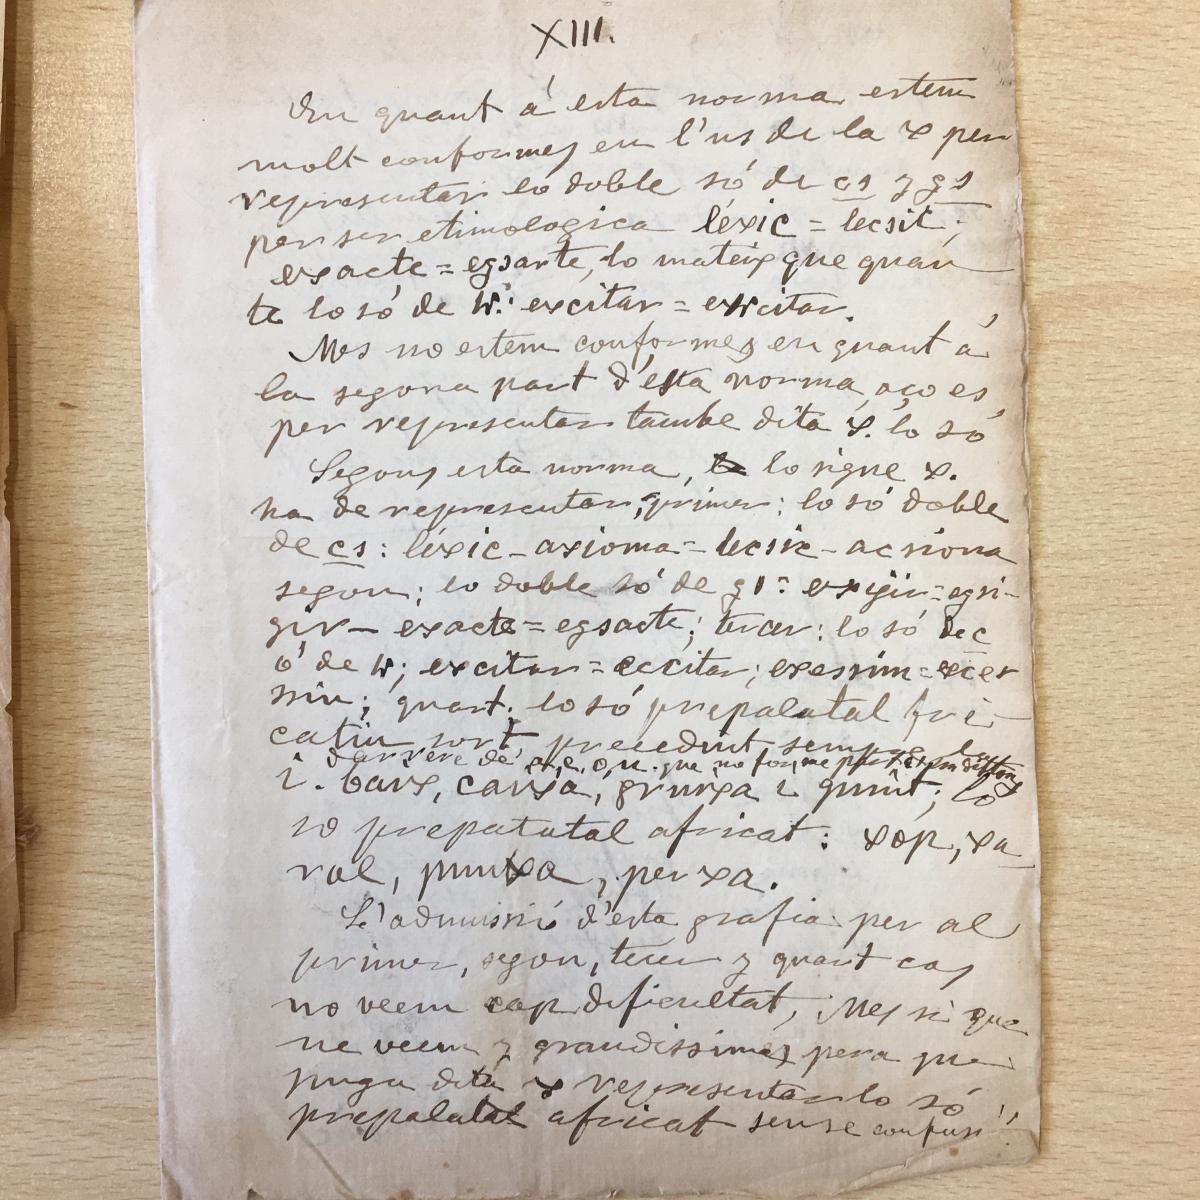 XIII.
En quant á esta norma estem
molt conformes en l'us de la x per
representar lo doble só de cs y gs
per ser etimologica léxic = lecsic;
exacte = egsacte, lo mateix que quan
te lo só de k: excitar = exkcitar.
Mes no estem conformes en quant á
la segona part d'esta norma, aço es,
per representar tambe dita x. lo só
Segons esta norma, lo signe x.
ha de representar, primer: lo só doble
de cs: léxic - axioma = lecsic - acsioma
segon; lo doble só de gs: exigir = egsi-
gir - exacte = egsacte; tercer: lo só de c
ó de k; excitar = eccitar;
quart. lo só prepalatal fri-
catiu sort, precedint sempre la
darrere de a, e, o, u. que no forme part d'un diftong
i. baix, caixa, gruixa i lo
so prepalatal africat: xop, xa
rol, punxa, perxa.
L'admissió d'esta grafia per al
primer, segon, tercer y quart cas
no veem cap dificultat, Mes si que
ne veem y grandissimes pera que
puga dita x representar lo só
prepalatal africat sense confusi